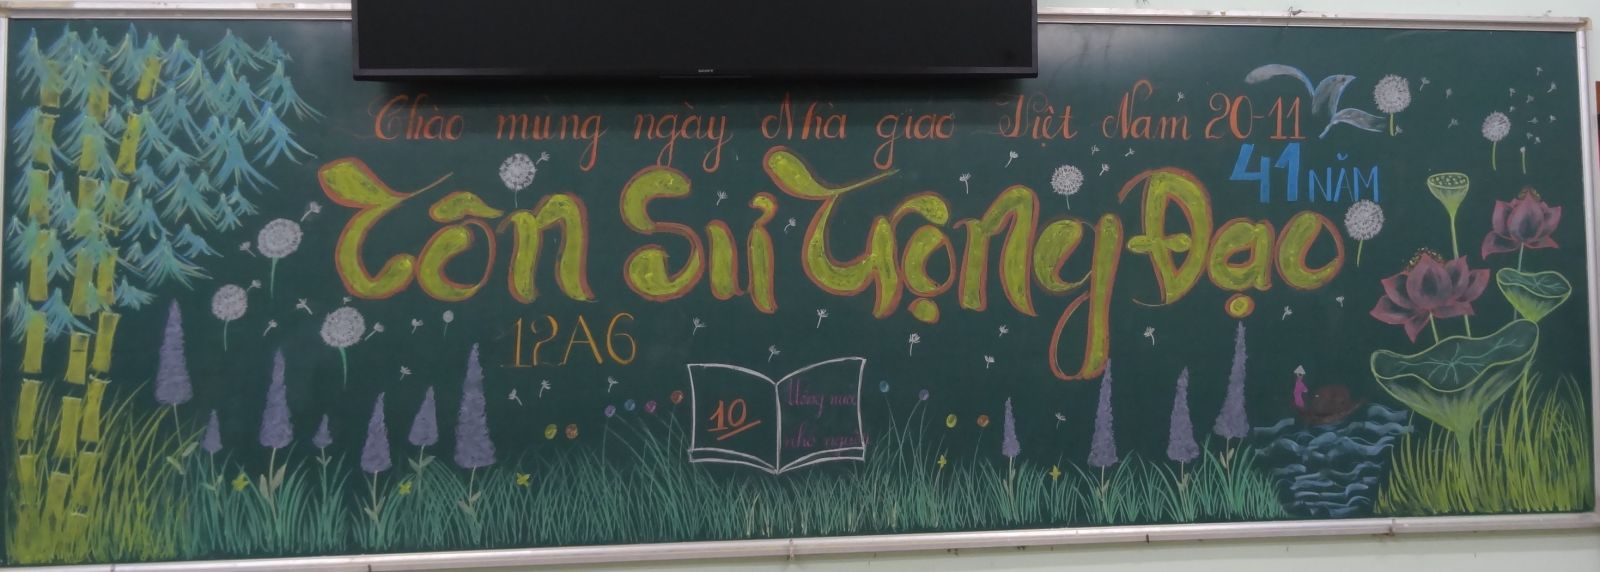 SONY
Chào mừng ngày Nhà giáo Việt Nam 20-11
41 NĂM
Tôn Sư Trọng Đạo
12A6
10
Uống nước
nhớ nguồn